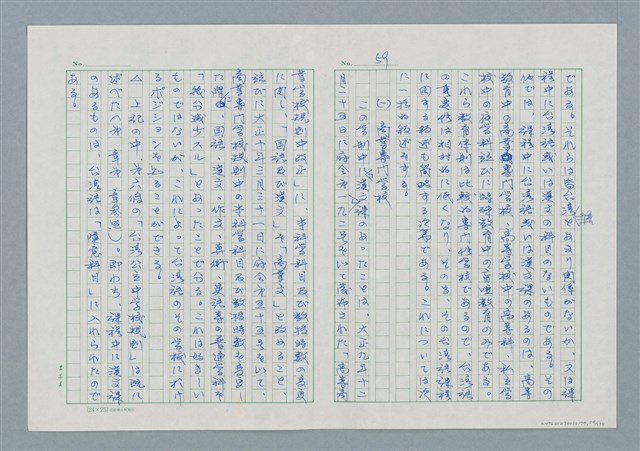 No. 59
である。それらは皆台湾とあまり関係がないか、又は課
程中に台湾語或いは漢文の科目のないものである。その
他では、課程中に台湾語或いは漢文課のあるのは、高等
教育中の高等専門学校、高等学校中の高等科、私立学
校中の夜学科並びに特殊教育の盲唖教育のみである。
これら教育体制は比較的専門性学校であるので、台湾語
の重要性は相対的に低くなり、その為、その台湾語課程
に関する敍述も簡略する次第である。これについては次
に一括的敍述をする。
(一) 高等専門学校
この学制中に漢文課のあったことは、大正九年十二
月二十五日に府令第一九二号を以て発布された「高等商
No.
業学校規則中改正」に、本科学科目及び教授時数の改変
に関し、「国語及び漢文」を「商業文」と改めること、
並びに大正十年三月三十一日に府令第五十五号を以て、
高等専門学校規則中の本科学科目及び教授時数を変更し
た時に、国語、漢文、作文、英術、英語等の普通学科を
「幾分減少スル」とあったことで分る。これは始まーい
ものではないが、これによって台湾語のその学校に於け
るポジションを知ることができる。
△ 上記の中、第六條の「台湾公立中学校規則」は既に
述べた(第 章第 章参照)。即わち、課程中に漢文課
のあるものは、台湾語は「随意科目」に入れられたので
ある。
(24×25)